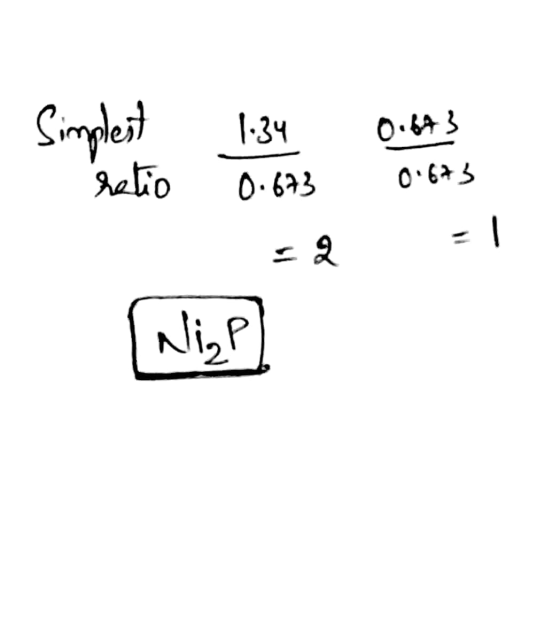 Simplest 1.34/0.673 0.673/0.673
ratio
= 2 = 1
Ni₂P